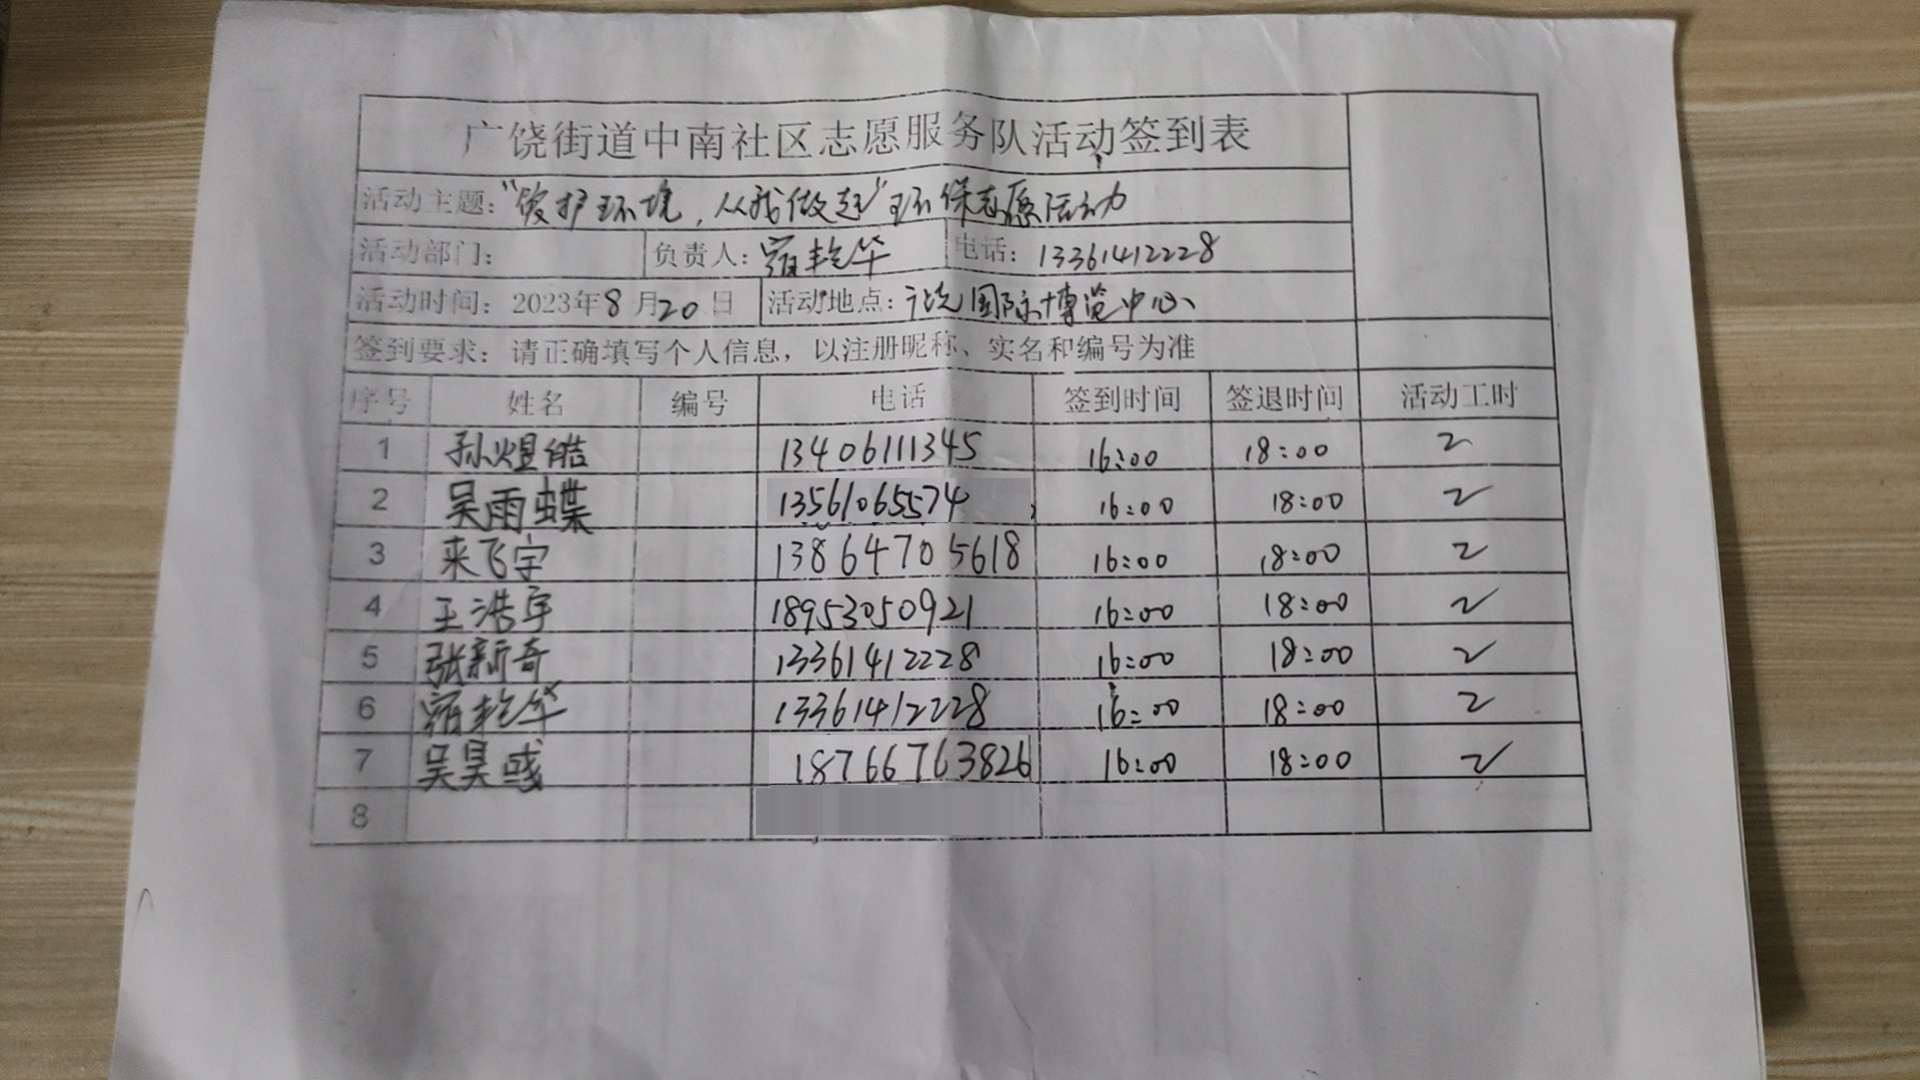 广饶街道中南社区志愿服务队活动签到表
活动主题："爱护环境，从我做起"环保志愿活动
活动部门： 负责人：宿艳华 电话：13361412228
活动时间：2023年8月20日 活动地点：广饶国际博览中心
签到要求：请正确填写个人信息，以注册昵称、实名和编号为准
序号 姓名 编号 电话 签到时间 签退时间 活动工时
1 孙煜皓 13406111345 16:00 18:00 2
2 吴雨蝶 13561065574 16:00 18:00 2
3 来飞宇 13864705618 16:00 18:00 2
4 王浩宇 18953050921 16:00 18:00 2
5 张新奇 13361412228 16:00 18:00 2
6 宿艳华 13361412228 16:00 18:00 2
7 吴昊彧 18766763826 16:00 18:00 2
8